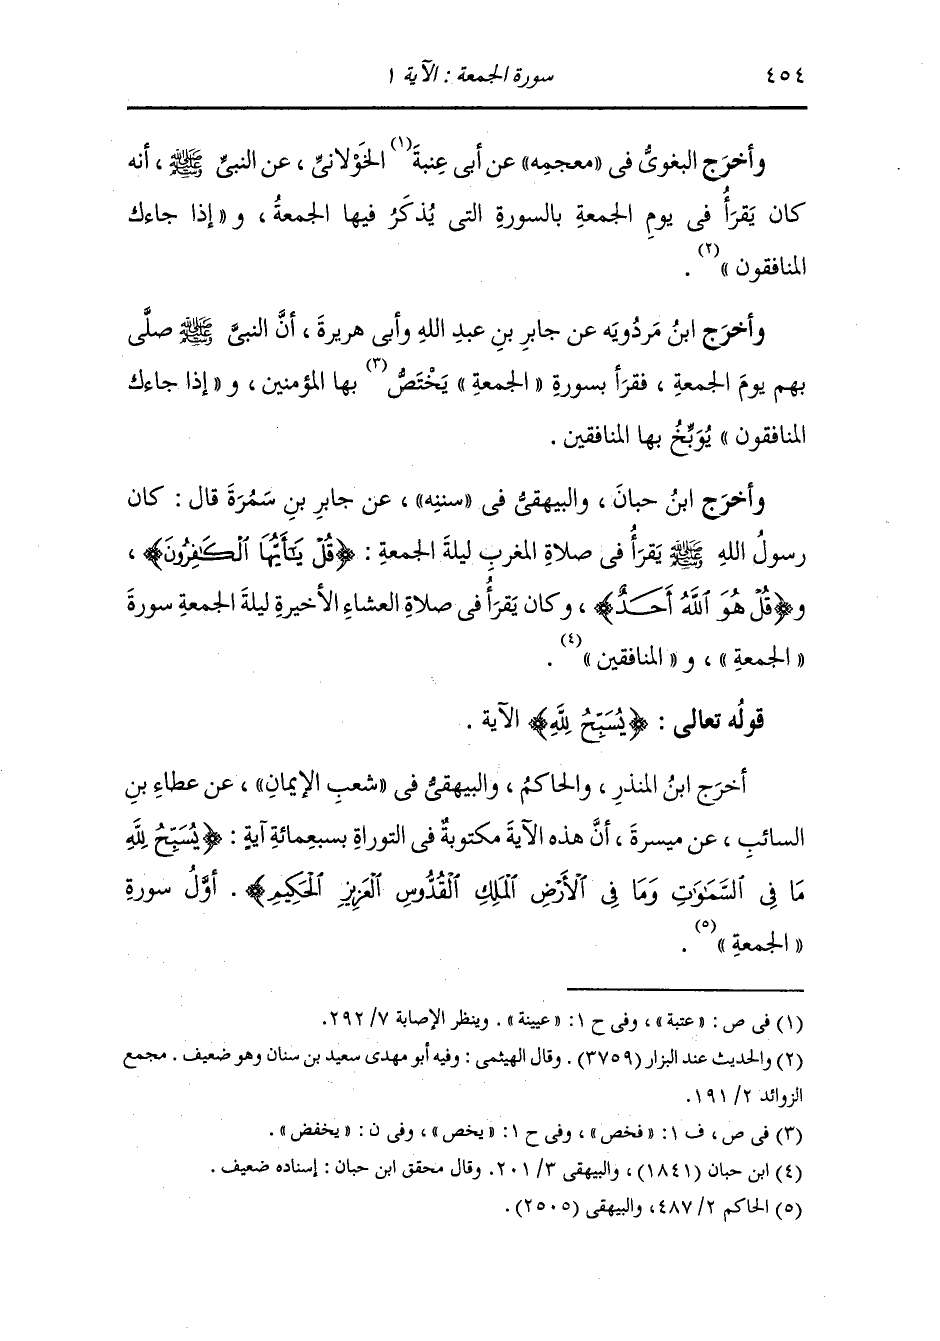 ٤٥٤ سورة الجمعة : الآية ١
وأخرَج البغوىُّ فى «معجمِه» عن أبى عِنبةَ(١) الخَوْلانىِّ ، عن النبىِّ ﷺ ، أنه
كان يَقرَأُ فى يومِ الجمعةِ بالسورةِ التى يُذكَرُ فيها الجمعةُ ، و « إذا جاءك
المنافقون »(٢) .
وأخرَج ابنُ مَردُويَه عن جابرِ بنِ عبدِ اللهِ وأبى هريرةَ ، أنَّ النبىَّ ﷺ صلَّى
بهم يومَ الجمعةِ ، فقرَأ بسورةِ « الجمعةِ » يَخْتَصُّ(٣) بها المؤمنين ، و « إذا جاءك
المنافقون » يُوَبِّخُ بها المنافقين .
وأخرَج ابنُ حبانَ ، والبيهقىُّ فى «سننِه» ، عن جابرِ بنِ سَمُرَةَ قال : كان
رسولُ اللهِ ﷺ يَقرَأُ فى صلاةِ المغربِ ليلةَ الجمعةِ : ﴿قُلْ يَٰٓأَيُّهَا ٱلْكَٰفِرُونَ﴾ ،
و﴿قُلْ هُوَ ٱللَّهُ أَحَدٌ﴾ ، وكان يَقرَأُ فى صلاةِ العشاءِ الأخيرةِ ليلةَ الجمعةِ سورةَ
« الجمعةِ » ، و « المنافقين »(٤) .
قولُه تعالى : ﴿يُسَبِّحُ لِلَّهِ﴾ الآية .
أخرَج ابنُ المنذرِ ، والحاكمُ ، والبيهقىُّ فى «شعبِ الإيمانِ» ، عن عطاءِ بنِ
السائبِ ، عن ميسرةَ ، أنَّ هذه الآيةَ مكتوبةٌ فى التوراةِ بسبعِمائةِ آيةٍ : ﴿يُسَبِّحُ لِلَّهِ
مَا فِى ٱلسَّمَٰوَٰتِ وَمَا فِى ٱلْأَرْضِ ٱلْمَلِكِ ٱلْقُدُّوسِ ٱلْعَزِيزِ ٱلْحَكِيمِ﴾ . أوَّلُ سورةِ
« الجمعةِ »(٥) .
(١) فى ص : «عتبة» ، وفى ح ١: «عيينة» . وينظر الإصابة ٧/ ٢٩٢.
(٢) والحديث عند البزار (٣٧٥٩) . وقال الهيثمى : وفيه أبو مهدى سعيد بن سنان وهو ضعيف . مجمع
الزوائد ٢/ ١٩١.
(٣) فى ص ، ف ١: «فخص» ، وفى ح ١: «يخص» ، وفى ن : «يخفض» .
(٤) ابن حبان (١٨٤١) ، والبيهقى ٣/ ٢٠١. وقال محقق ابن حبان : إسناده ضعيف .
(٥) الحاكم ٢/ ٤٨٧، والبيهقى (٢٥٠٥) .